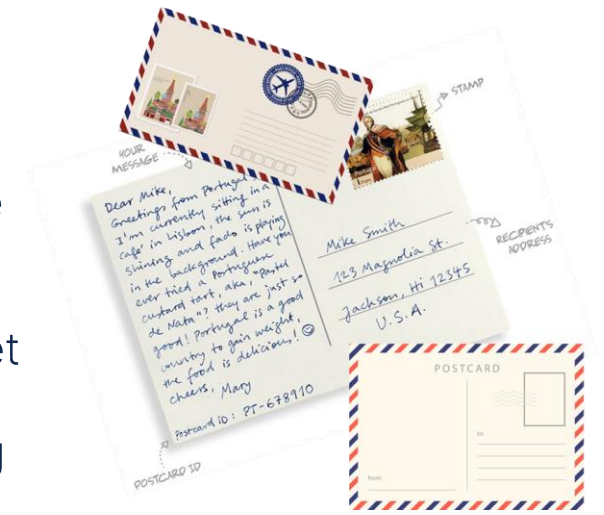 STAMP
YOUR
MESSAGE
Dear Mike,
Greetings from Portugal
I'm currently sitting in a
café in Lisbon, the sun is
shining and fado is playing
in the background. Have you
ever tried a Portuguese
custard tart, aka, "pastel
de Nata"? they are just so
good! Portugal is a good
country to gain weight,
the food is delicious! ☺
cheers, Mary
Postcard iD: PT-678910
Mike Smith
123 Magnolia St.
Jackson, Hi 12345
U.S.A.
RECIPIENTS
ADDRESS
POSTCARD ID
POSTCARD